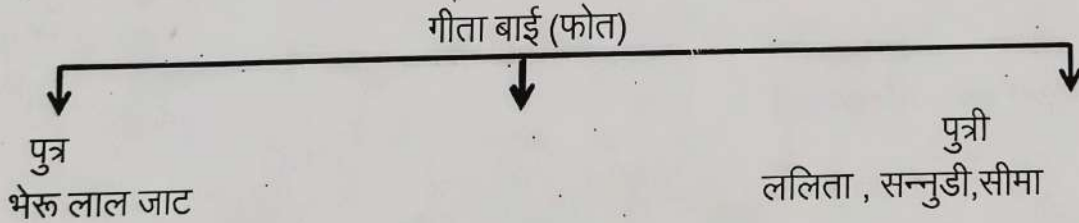 गीता बाई (फोत)
पुत्र
भेरू लाल जाट
पुत्री
ललिता , सन्नुडी,सीमा